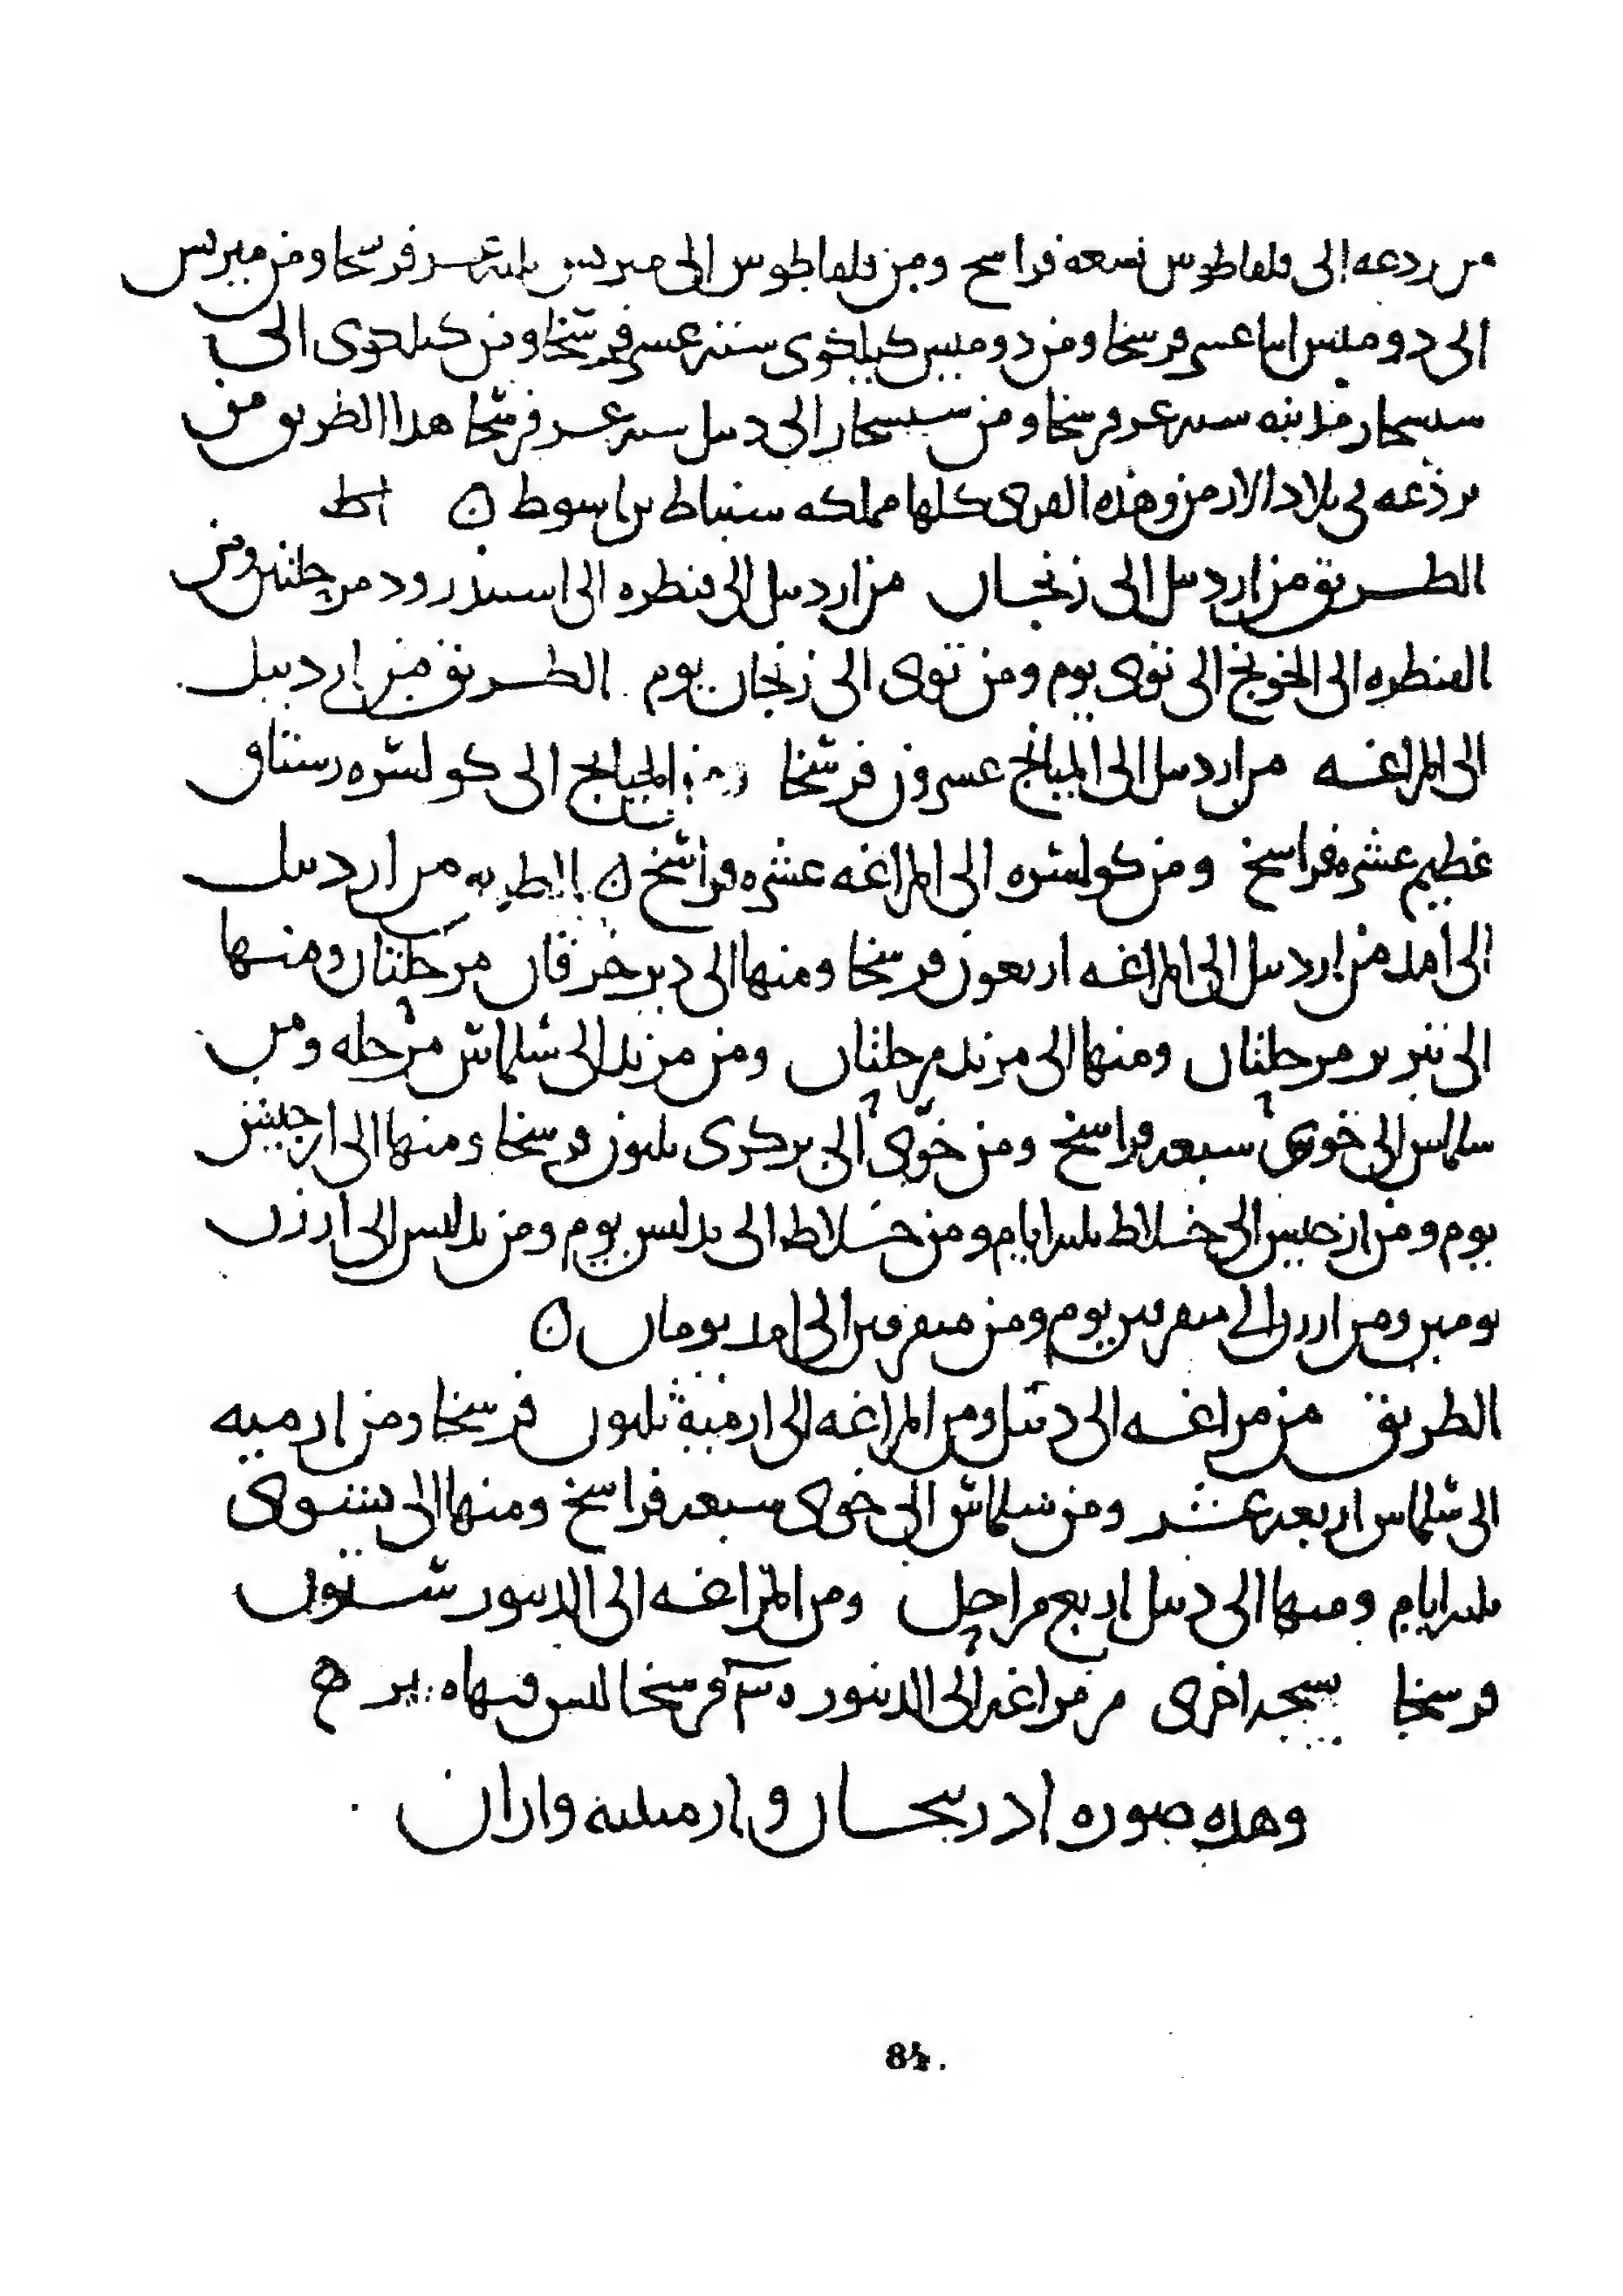 من بردعه الى قلقاطوس تسعه فراسخ ومن قلقاطوس الى متريس ثلثه عشر فرسخا ومن متريس
الى دوميس اثنا عشر فرسخا ومن دوميس كيلكوى ستة عشر فرسخا ومن كيلكوى الى
سيسجان مدينه سته عشر فرسخا ومن سيسجان الى دبيل سته عشر فرسخا هذا الطريق من
برذعه في بلاد الارمن وهذه القرى كلها مملكه سنباط بن اسوط
الطريق من اردبيل الى زنجان من اردبيل الى قنطره الى اسبيذرود مرحلتين ومن
القنطره الى الخونج الى توى يوم ومن توى الى زنجان يوم الطريق من اردبيل
الى المراغه من اردبيل الى الميانج عشرون فرسخا الميانج الى كولسره رستاق
عظيم عشره فراسخ ومن كولسره الى المراغه عشره فراسخ الطريق من اردبيل
الى امد من اردبيل الى المراغه اربعون فرسخا ومنها الى دير خرقان مرحلتان ومنها
الى تبريز مرحلتان ومنها الى مرند مرحلتان ومن مرند الى سلماس مرحله ومن
سلماس الى خوى سبعه فراسخ ومن خوى الى بركرى ثلثون فرسخا ومنها الى ارجيش
يوم ومن ارجيش الى خلاط ثلثه ايام ومن خلاط الى بدليس يوم ومن بدليس الى ارزن
يومين ومن ارزن الى ميفرقين يوم ومن ميفرقين الى امد يومان
الطريق من مراغه الى دبيل ومن المراغه الى ارميه ثلثون فرسخا ومن ارميه
الى سلماس اربعه عشر ومن سلماس الى خوى سبعه فراسخ ومنها الى نشوى
ثلثه ايام ومنها الى دبيل اربع مراحل ومن المراغه الى الدينور ستون
فرسخا نسخه اخرى من مراغه الى الدينور فرسخا ليس فيها
وهذه صوره اذربيجان وارمينيه واران
84.